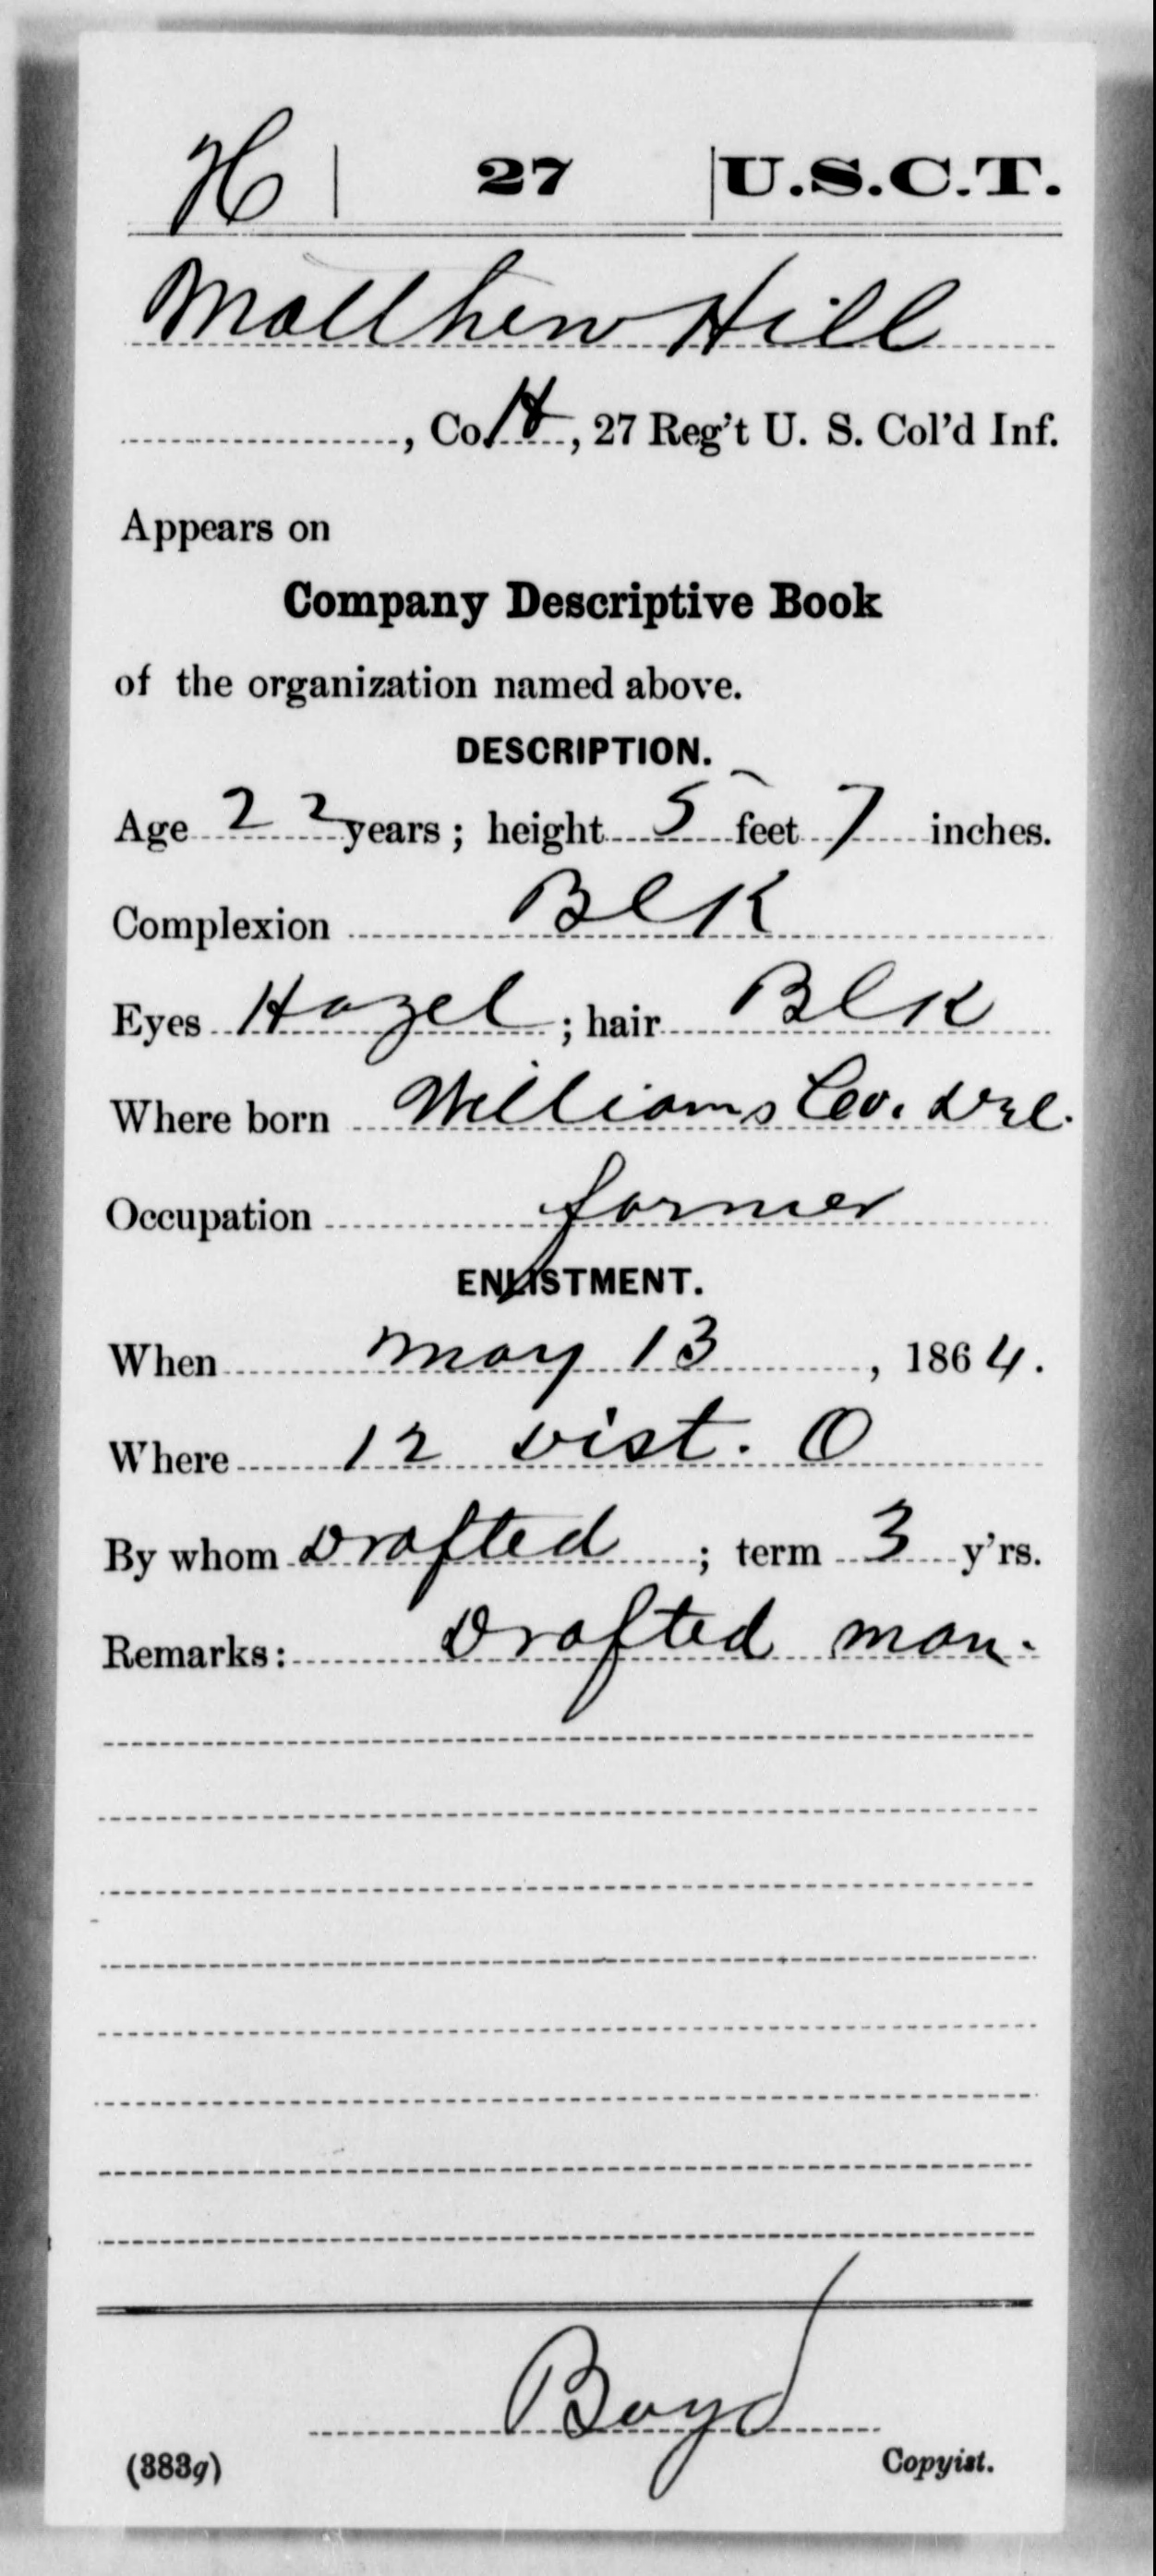 H | 27 | U.S.C.T.
Matthew Hill
, Co. H, 27 Reg't U. S. Col'd Inf.
Appears on
Company Descriptive Book
of the organization named above.
DESCRIPTION.
Age 22 years; height 5 feet 7 inches.
Complexion Blk
Eyes Hazel; hair Blk
Where born Williams Co.
Occupation farmer
ENLISTMENT.
When May 13, 1864.
Where 12 Dist. O
By whom Drafted; term 3 y'rs.
Remarks: Drafted man.
Boyd
(383g) Copyist.